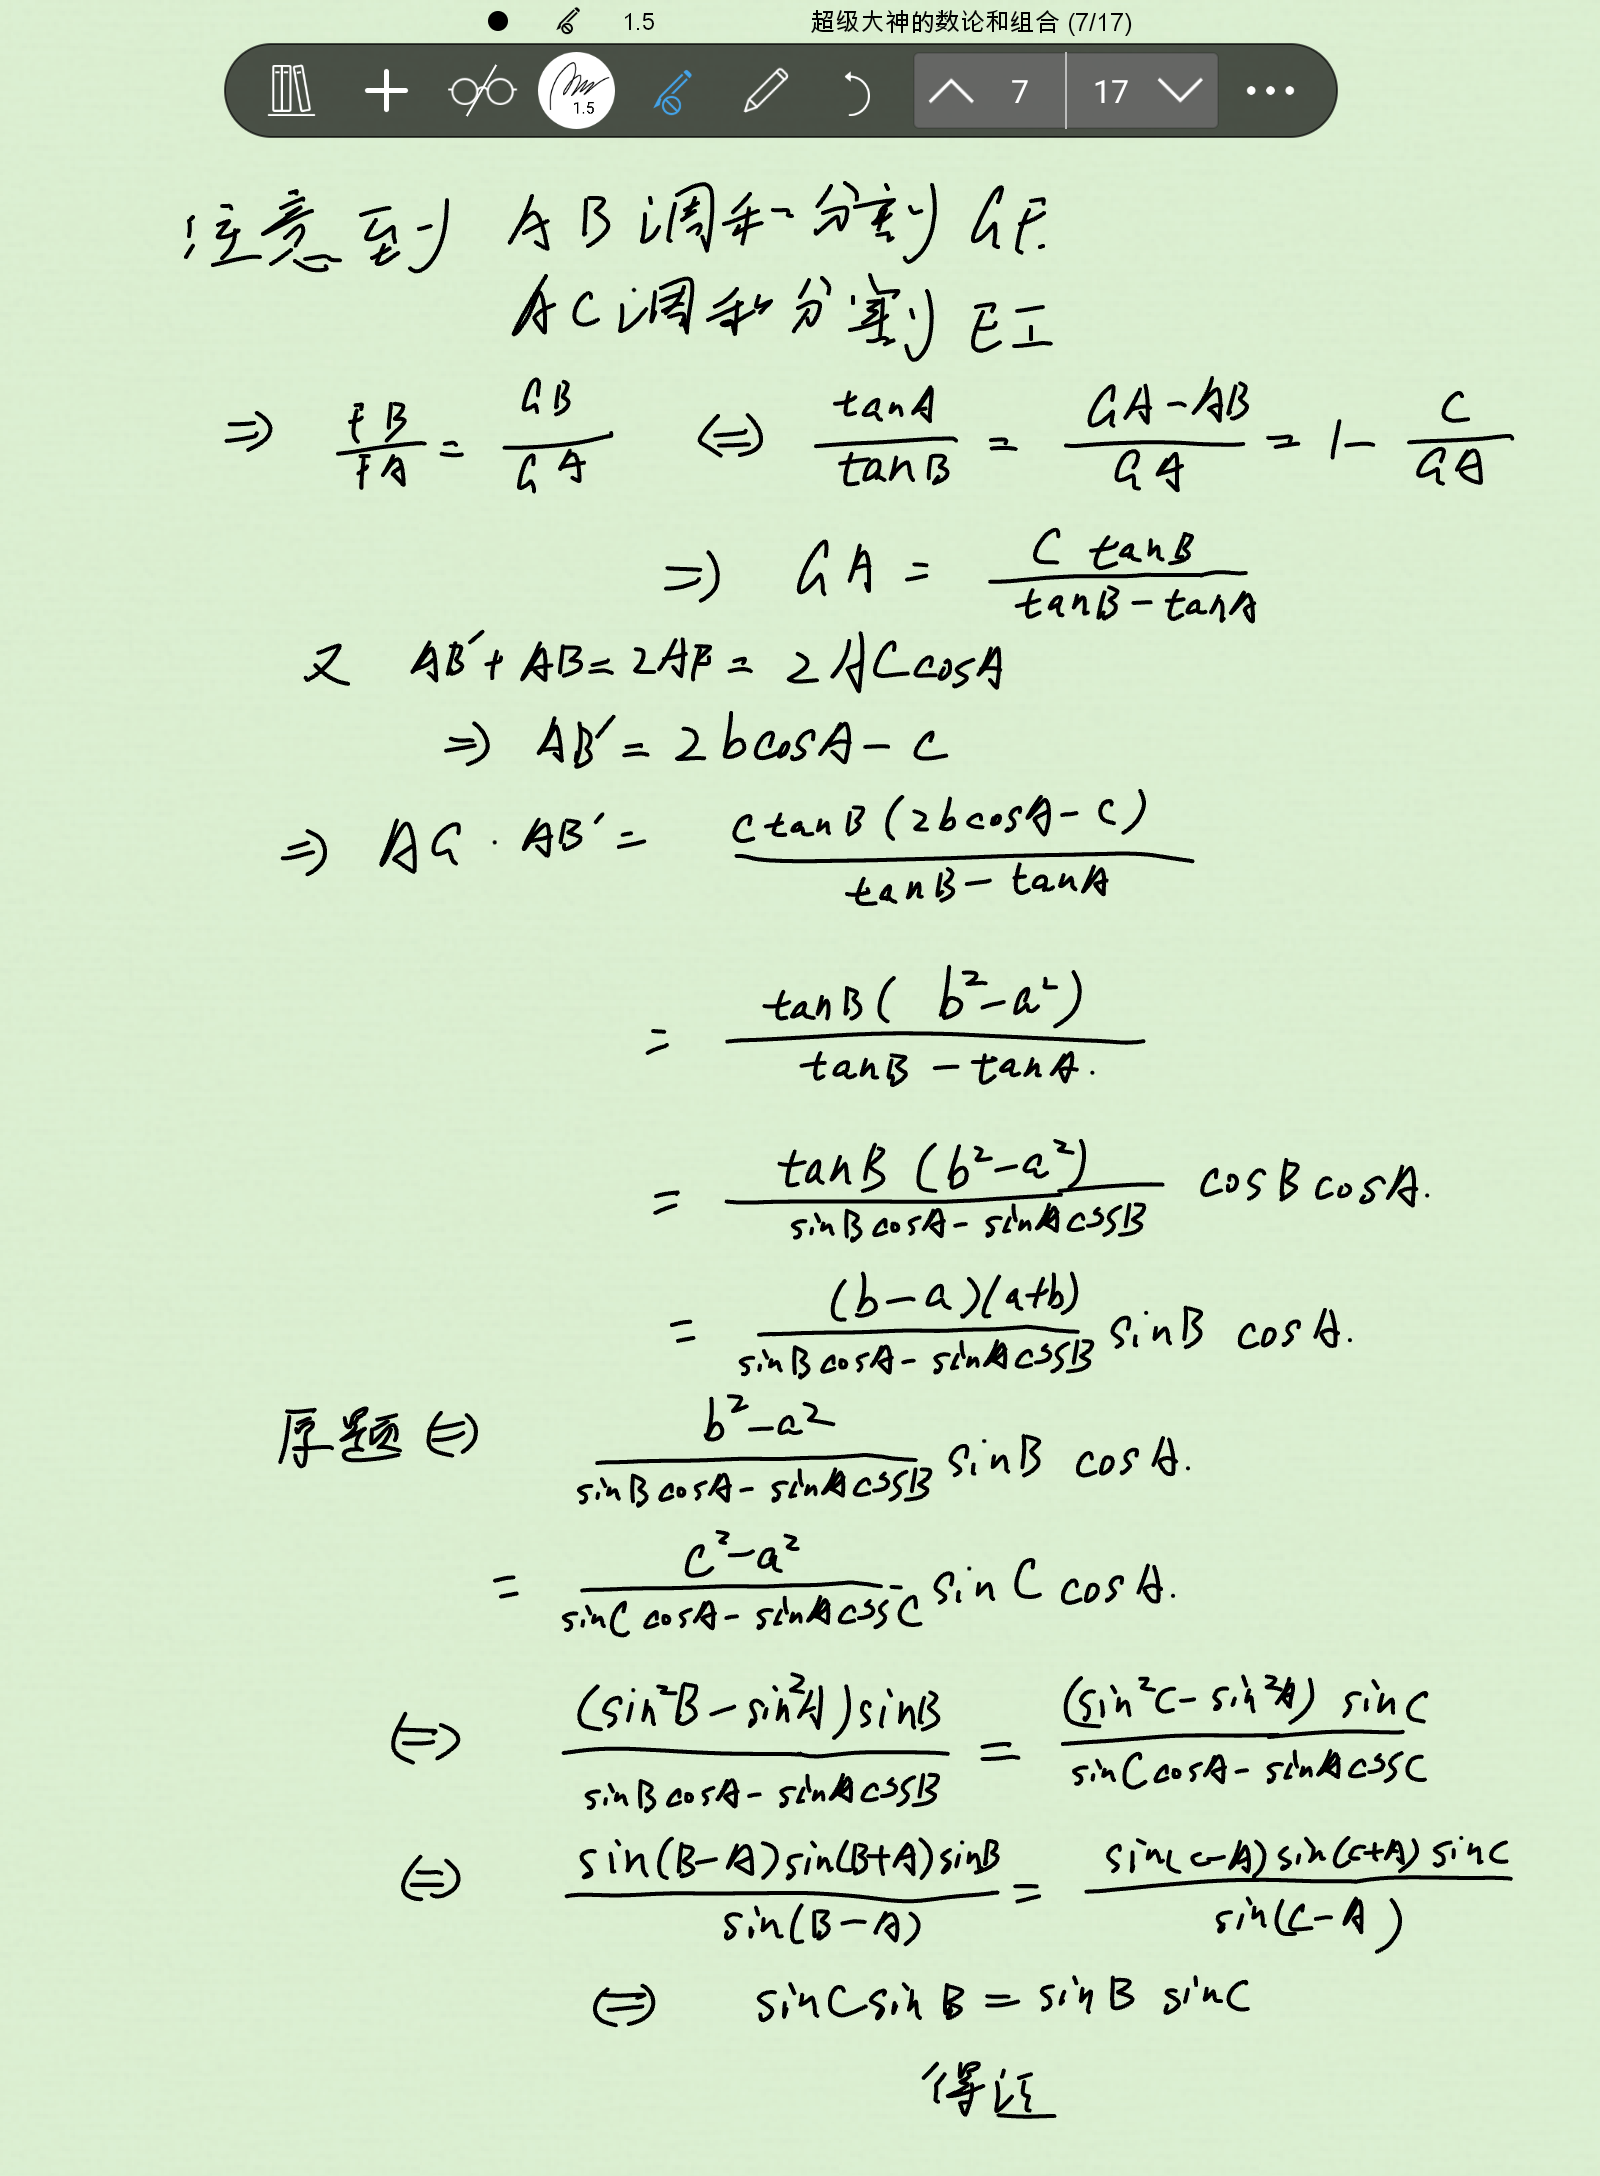 1.5 超级大神的数论和组合 (7/17)
1.5 7 17
注意到 AB调和分割GF.
AC调和分割EI
⇒ FB/FA = GB/GA ⇔ tanA/tanB = (GA-AB)/GA = 1- C/GA
⇒ GA = C tanB/(tanB-tanA)
又 AB'+AB=2AF=2ACcosA
⇒ AB'=2bcosA-c
⇒ AG·AB'= ctanB(2bcosA-c)/(tanB-tanA)
= tanB(b²-a²)/(tanB-tanA).
= tanB(b²-a²)/(sinBcosA-sinAcosB) cosBcosA.
= (b-a)(a+b)/(sinBcosA-sinAcosB) sinB cosA.
原题⇔ (b²-a²)/(sinBcosA-sinAcosB) sinB cosA.
= (c²-a²)/(sinCcosA-sinAcosC) sinC cosA.
⇔ (sin²B-sin²A)sinB/(sinBcosA-sinAcosB) = (sin²C-sin²A) sinC/(sinCcosA-sinAcosC)
⇔ sin(B-A)sin(B+A)sinB/sin(B-A) = sin(C-A)sin(C+A)sinC/sin(C-A)
⇔ sinCsinB=sinB sinC
得证